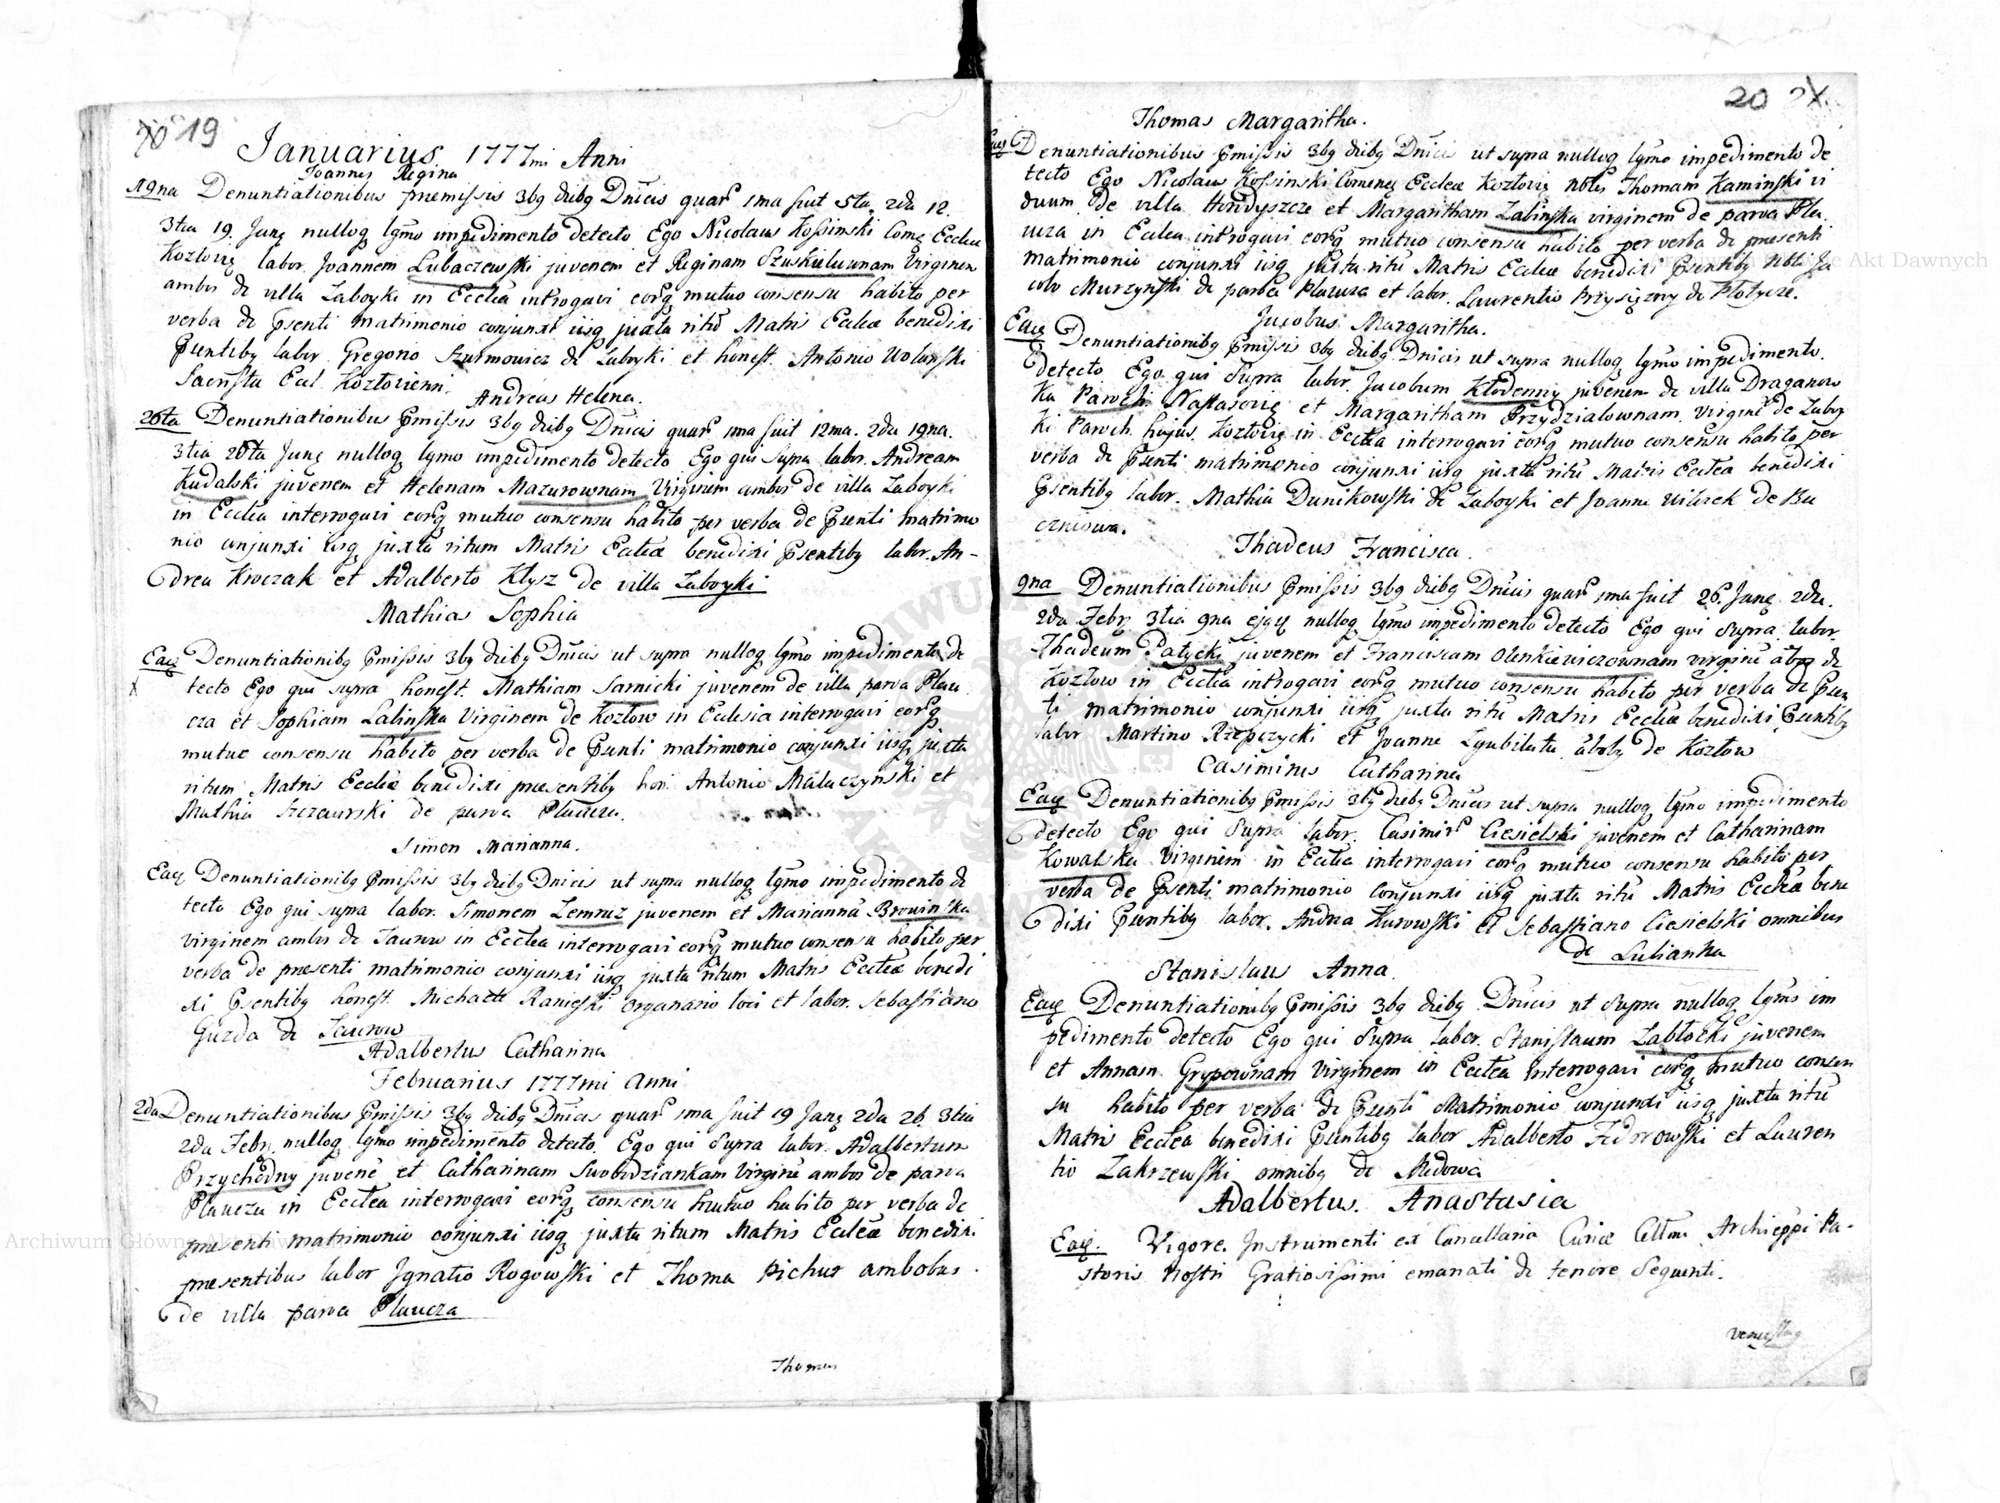 19
Januarius 1777mi Anni
Joannes Regina
19na Denuntiationibus premissis 3bq dieby Dnicis quar 1ma fuit 5ta 2da 12.
3tia 19. Janę nulloq lgmo impedimento detecto Ego Nicolaus Kossinski Comę Eccleae
Kozlovię labor. Joannem Lubaczewski juvenem et Reginam Virginem
ambos de villa Zaboyki in Ecclea introgavi eorq mutuo consensu habito per
verba de psenti matrimonio conjunxi iisq juxta ritū Matris Eccleae benedixi
Psentiby labor. Gregorio Szurmowicz de Zaboyki et honest. Antonio Wolanski
Sacrista Eccl. Kozlovienn.
Andreas Helena.
26ta Denuntiationibus Pmissis 3bq dieby Dnicis quar 1ma fuit 12ma. 2da 19na.
3tia 26ta Janę nulloq lgmo impedimento detecto Ego qui supra labor. Andream
Kudalski juvenem et Helenam Mazurownam Virginem ambos de villa Zaboyki
in Ecclea interrogavi eorq mutuo consensu habito per verba de Psenti matrimo
nio conjunxi iisq juxta ritum Matris Eccleae benedixi Psentiby labor. An-
drea Kroczak et Adalberto Klysz de villa Zaboyki
Mathias Sophia
Eaq Denuntiationiby Pmissis 3bq dieby Dnicis ut supra nulloq lgmo impedimento de
tecto Ego qui supra honest. Mathiam Sarnicki juvenem de villa parva Plau
cza et Sophiam Zalinska Virginem de Kozlow in Eclesia interrogavi eorq
mutuo consensu habito per verba de Psenti matrimonio conjunxi iisq juxta
ritum Matris Eccleae benedixi presentiby hon. Antonio Malaczynski et
Mathia Szczawski de parva Plaucza.
Simon Marianna.
Eaq Denuntiationiby Pmissis 3bq dieby Dnicis ut supra nulloq lgmo impedimento de
tecto Ego qui supra labor. Simonem Zemruz juvenem et Mariannā Browinska
virginem ambos de Taurow in Ecclea interrogavi eorq mutuo consensu habito per
verba de presenti matrimonio conjunxi iisq juxta ritum Matris Eccleae benedi
xi Psentiby honest. Michaele Ranieski organario loci et labor. Sebastiano
Guzda de Taurow
Adalbertus Catharina
Februarius 1777mi Anni
2da Denuntiationibus Pmissis 3bq dieby Dnicis quar 1ma fuit 19 Janę 2da 26. 3tia
2da Febr. nulloq lgmo impedimento detecto Ego qui supra labor. Adalbertum
Przychodny juvenē et Catharinam Swobodziankam Virginē ambos de parva
Plaucza in Ecclea interrogavi eorq consensu mutuo habito per verba de
presenti matrimonio conjunxi iisq juxta ritum Matris Eccleae benedixi
presentibus labor Ignatio Rogowski et Thoma Pichur ambobus
de villa parva Plaucza
Thomas
20
Thomas Margaritha.
Eaq Denuntiationibus Pmissis 3bq dieby Dnicis ut supra nulloq lgmo impedimento de
tecto Ego Nicolaus Kossinski Comenę Eccleae Kozlovię nblis Thomam Kaminski vi
duum de villa Hindyszcze et Margaritham Zalinska virginem de parva Pla
ucza in Ecclea introgavi eorq mutuo consensu habito per verba de presenti
matrimonio conjunxi iisq juxta ritū Matris Eccleae benedixi Psentiby nbli Ja
cobo Murzynski de parva Plaucza et labor. Laurentio Przysięzny de Plotycze.
Jacobus Margaritha.
Eaq Denuntiationiby Pmissis 3bq dieby Dnicis ut supra nulloq lgmo impedimento.
detecto Ego qui Supra labor. Jacobum Klodenny juvenem de villa Draganow
ka Paroch. et Margaritham Przydzialownam Virginē de Zaboy
ki Paroch. hujus Kozlovię in Ecclea interrogavi eorq mutuo consensu habito per
verba de Psenti matrimonio conjunxi iisq juxta ritū Matris Eccleae benedixi
Psentiby labor. Mathia Dunikowski de Zaboyki et Joanne Wilczek de Bu
czniowa.
Thadeus Francisca.
9na Denuntiationibus Pmissis 3bq dieby Dnicis quar 1ma fuit 26. Janę 2da.
2da Febr 3tia 9na ejq nulloq lgmo impedimento detecto Ego qui Supra labor.
Thadeum Patycki juvenem et Franciscam Olenkiewiczownam virginē de
Kozlow in Ecclea introgavi eorq mutuo consensu habito per verba de Psen
ti matrimonio conjunxi iisq juxta ritū Matris Eccleae benedixi Psentiby
labor Martino Rzepczycki et Joanne de Kozlow
Casimirus Catharina
Eaq Denuntiationiby Pmissis 3bq dieby Dnicis ut supra nulloq lgmo impedimento
detecto Ego qui Supra labor. Casimirū Ciesielski juvenem et Catharinam
Kowalska Virginem in Ecclea interrogavi eorq mutuo consensu habito per
verba de Psenti matrimonio conjunxi iisq juxta ritū Matris Eccleae bene
dixi Psentiby labor. Andrea Kurowski et Sebastiano Ciesielski omnibus
de Lulianka
Stanislaus Anna.
Eaq Denuntiationiby Pmissis 3bq dieby Dnicis ut Supra nulloq lgmo im
pedimento detecto Ego qui Supra labor. Stanislaum Zablocki juvenem
et Annam Grypownam Virginem in Ecclea interrogavi eorq mutuo consen
su habito per verba de Psenti Matrimonio conjunxi iisq juxta ritū
Matris Eccleae benedixi Psentiby labor Adalberto Fedorowski et Lauren
tio Zakrzewski omniby de Medowa
Adalbertus. Anastasia
Eaq. Vigore Instrumenti ex Cancellaria Curiae Archieppi Pa-
storis Nostri Gratiosissimi emanati de tenore Sequenti.